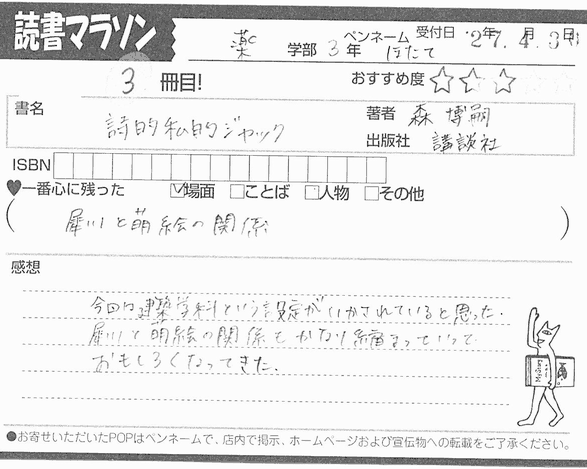 読書マラソン
薬学部3年 ペンネーム ほたて 受付日 '27年4月3日
3冊目! おすすめ度 ☆☆☆
書名 詩的私的ジャック
著者 森 博嗣
出版社 講談社
ISBN
♥一番心に残った ☑場面 □ことば □人物 □その他
(犀川と萌絵の関係)
感想
今回は建築学科という設定がいかされていると思った.
犀川と萌絵の関係もかなり縮まっていって
おもしろくなってきた.
●お寄せいただいたPOPはペンネームで、店内で掲示、ホームページおよび宣伝物への転載をご了承ください。